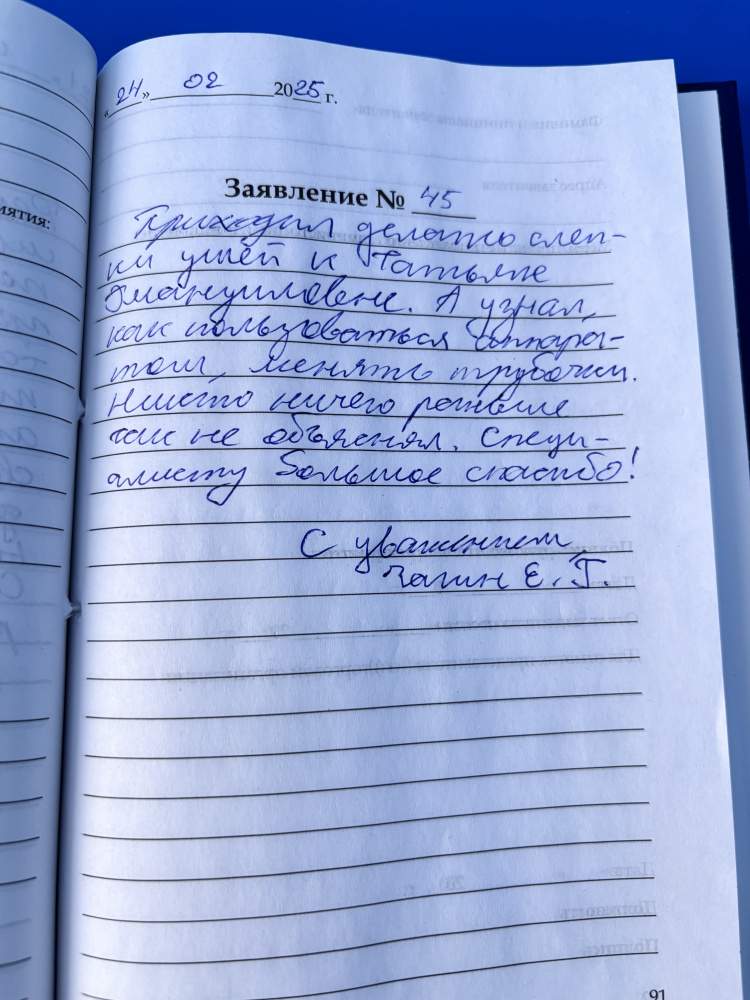 «24» 02 2025 г.
Заявление № 45
Приходил делать слеп-
ки ушей к Татьяне
Эмануиловне. А узнал,
как пользоваться аппара-
том, менять трубочки.
Никто ничего раньше
так не объяснял. Специ-
алисту большое спасибо!
С уважением,
Чагин Е. Г.
иятия:
91